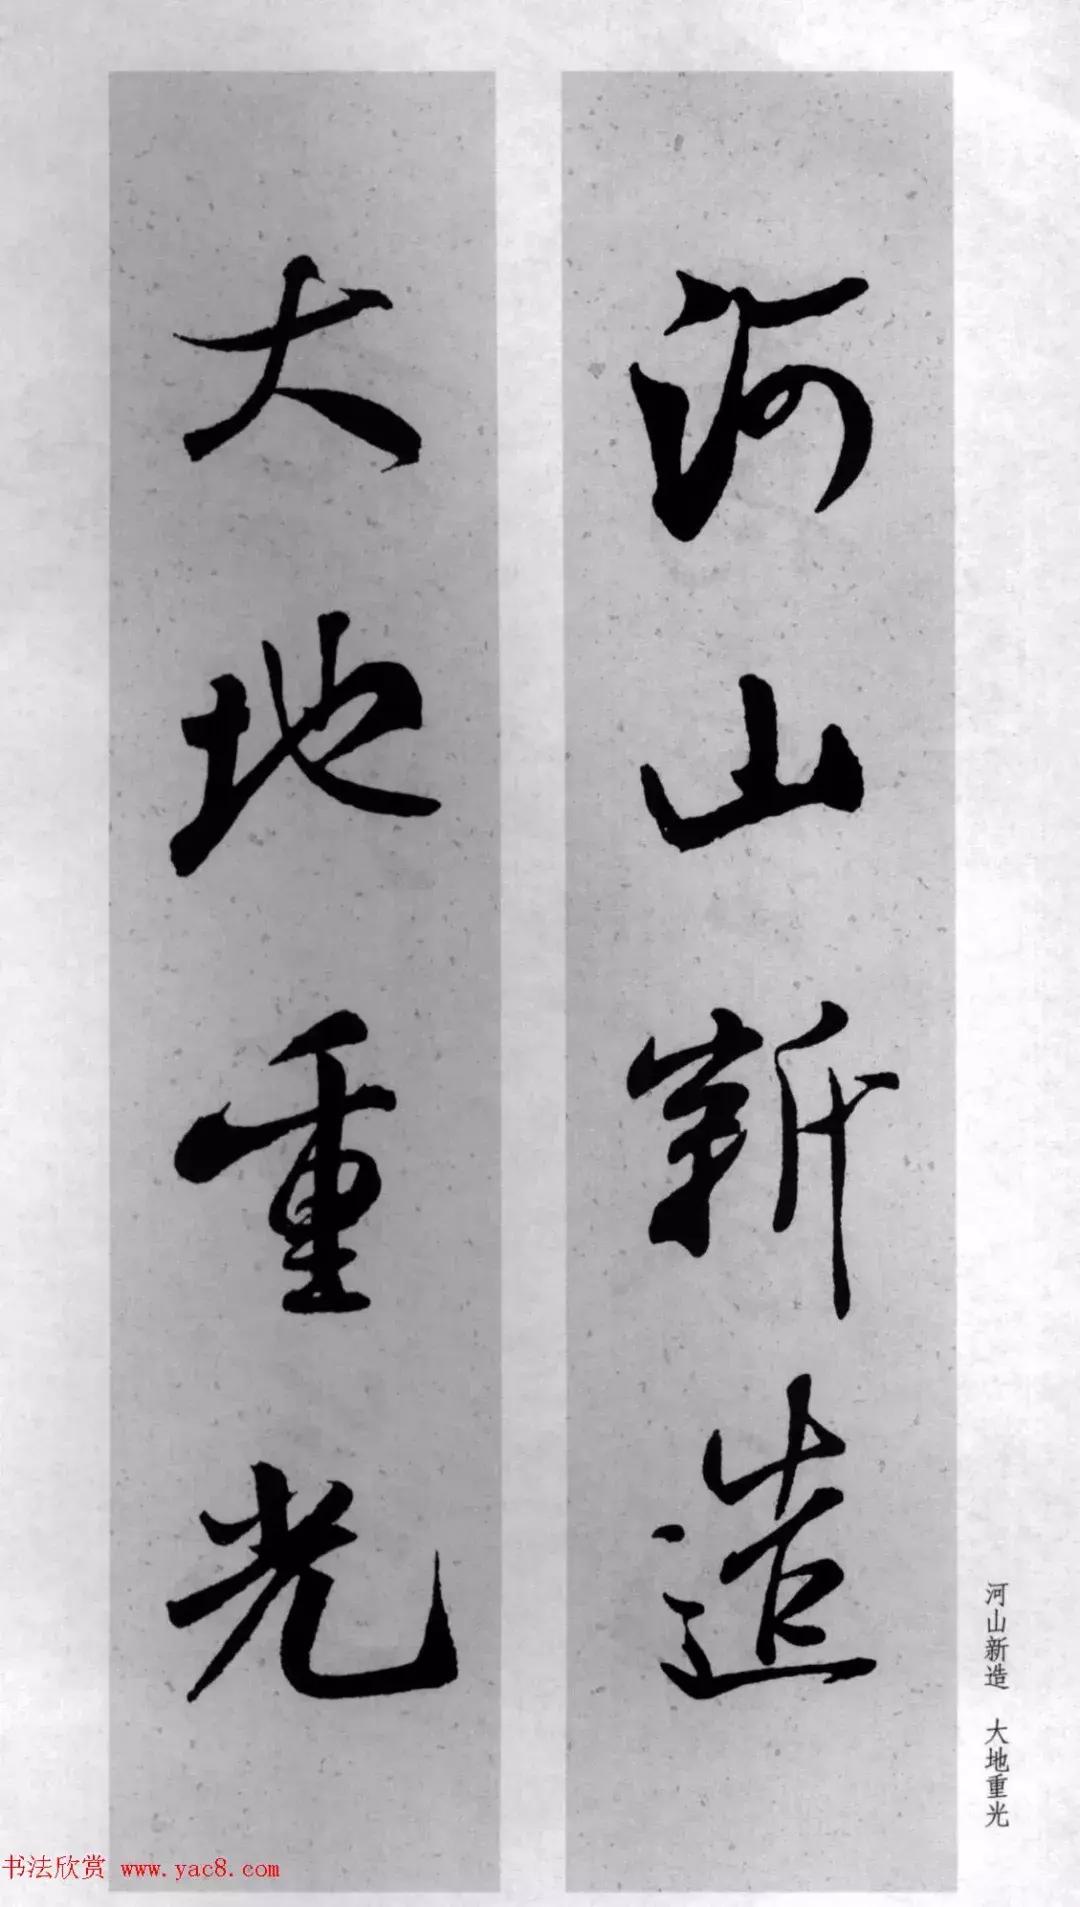 河山新造
大地重光
河山新造 大地重光
书法欣赏 www.yac8.com